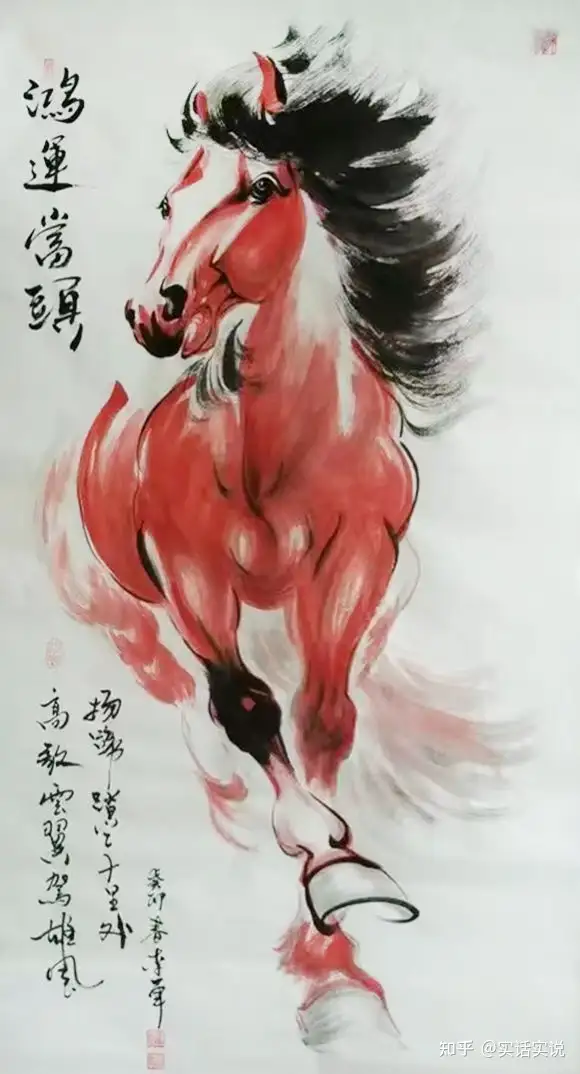 鴻運當頭
扬蹄千里外
高雲翼駕雄風
癸卯春李軍
知乎 @实话实说